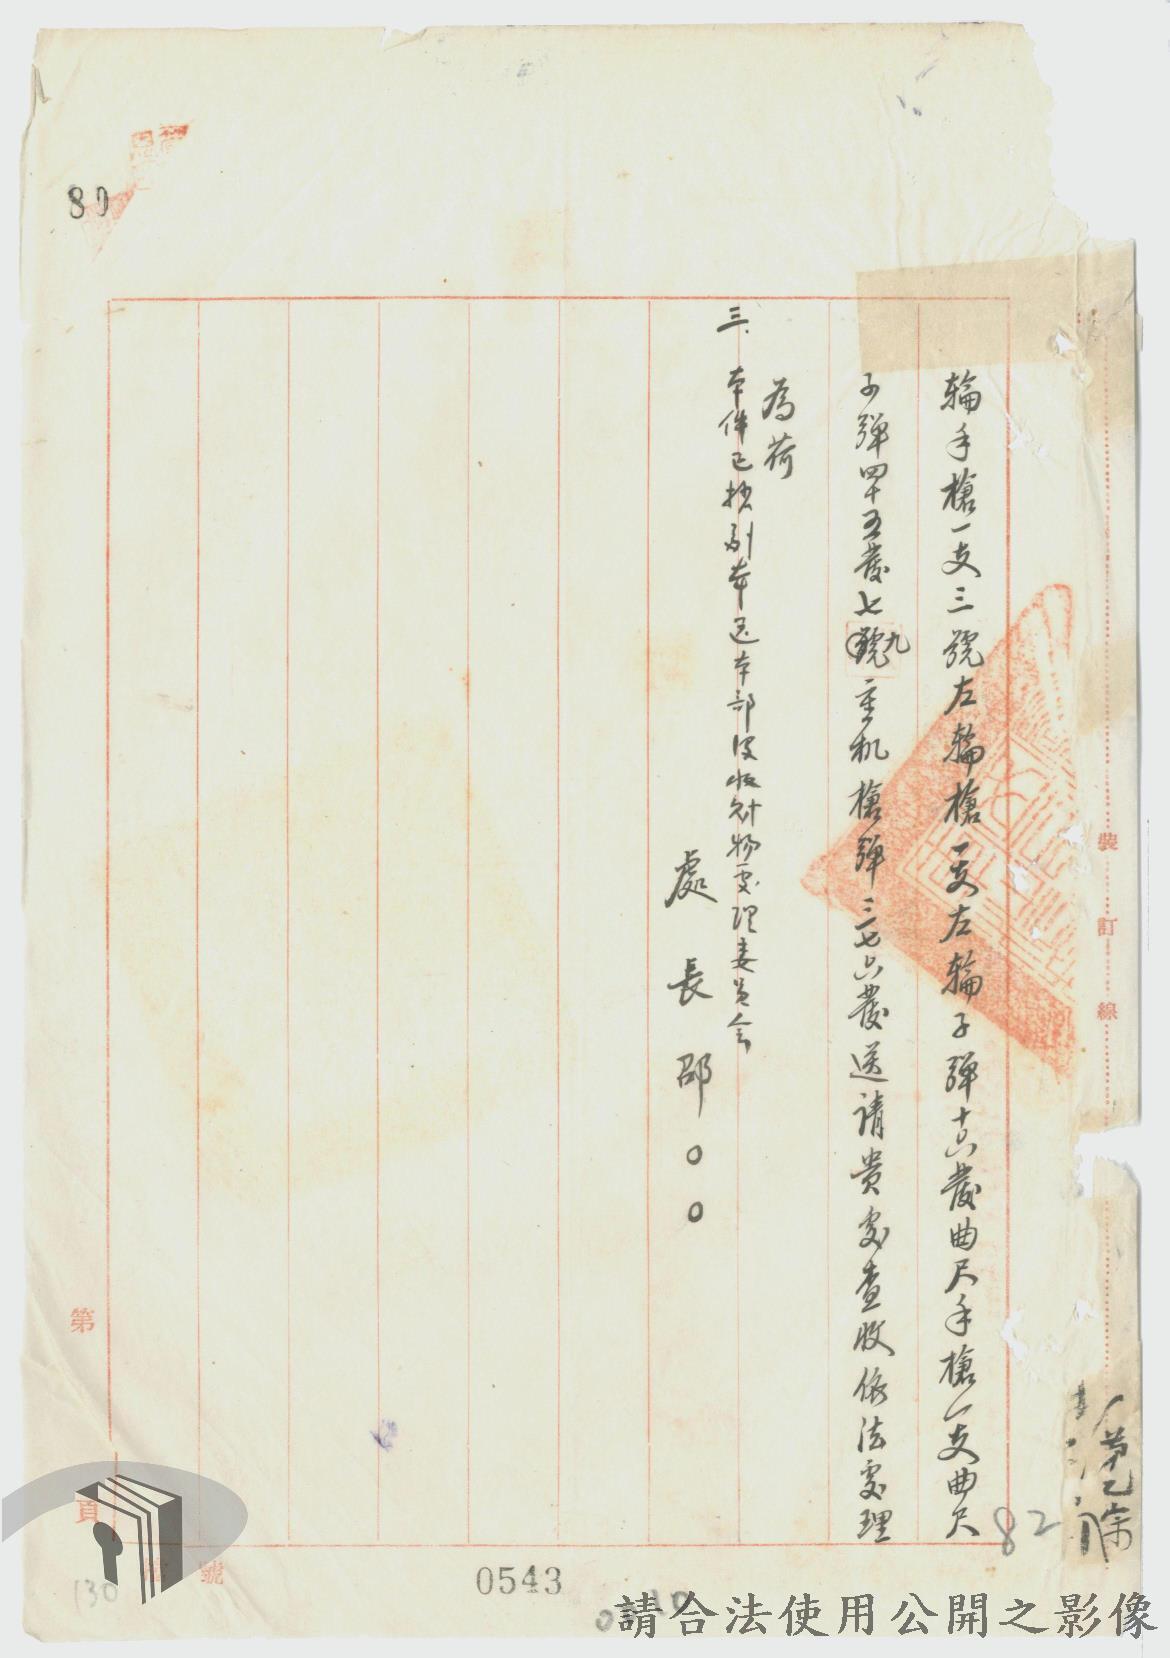 輪手槍一支三號左輪槍一支左輪子彈十六發曲尺手槍一支曲尺
子彈四十五發七九重机槍彈三七六發送請貴處查收依法處理
為荷
三、本件已抄副本送本部沒收財物處理委員會
處長邵○○
裝訂線
80
82
第
頁
號
130
0543
請合法使用公開之影像